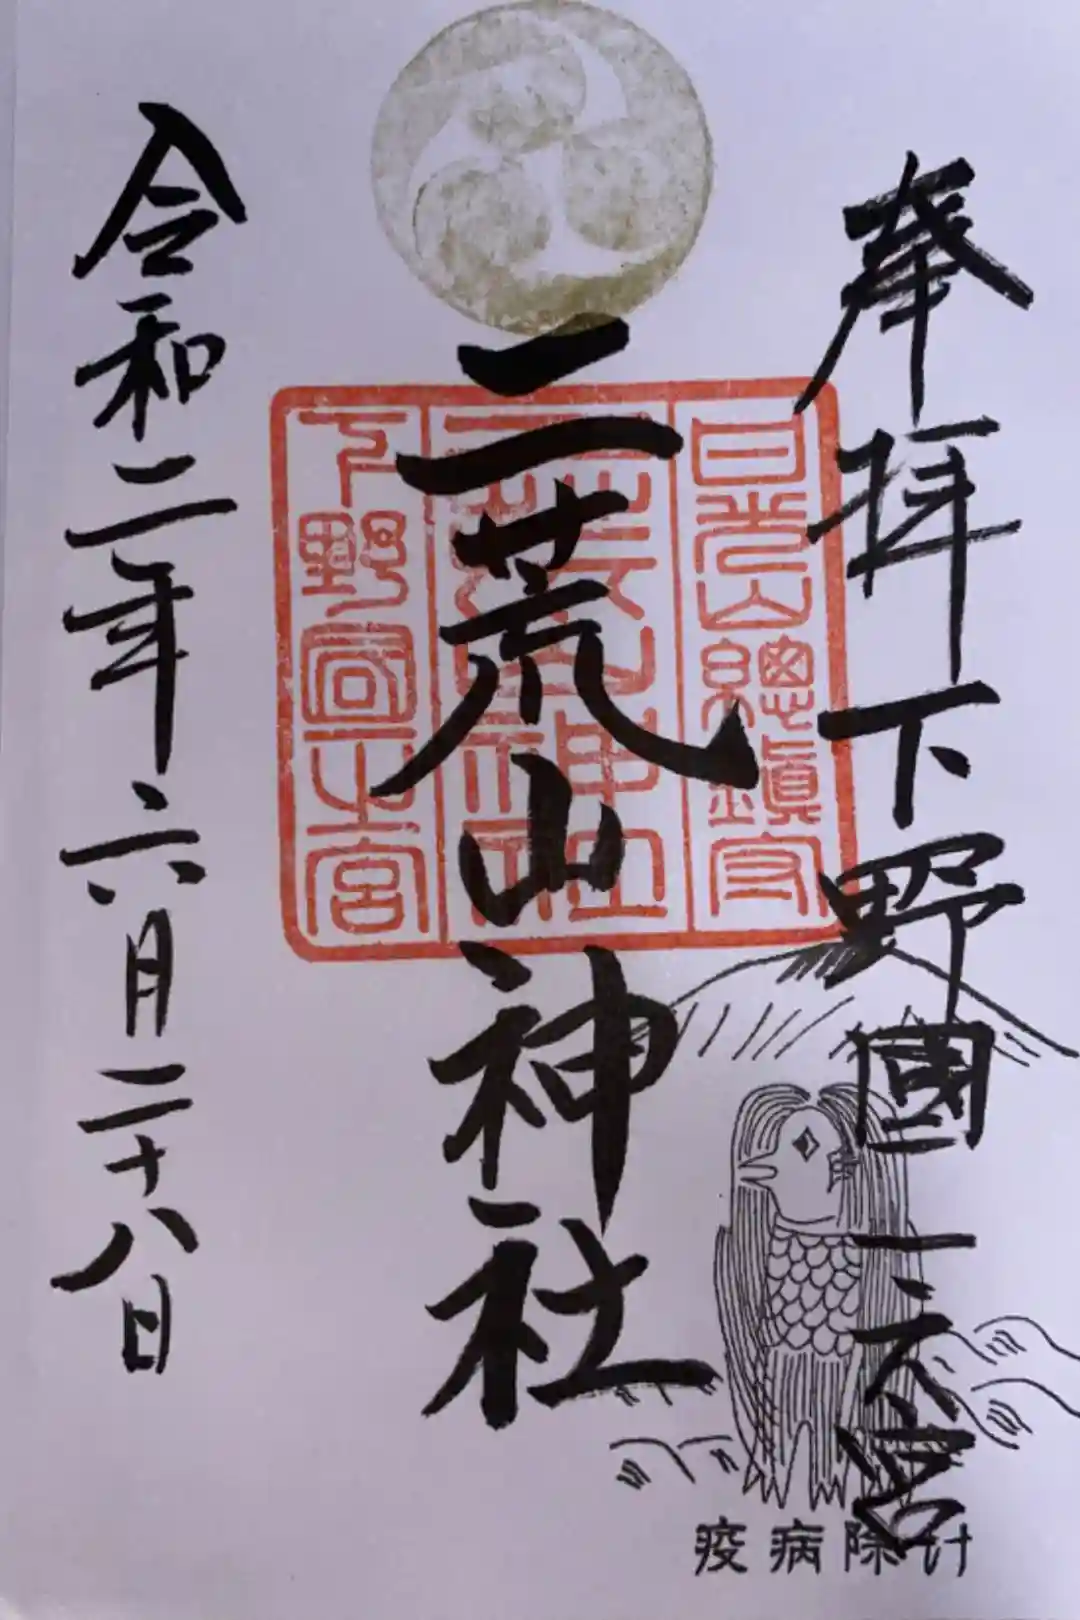 奉拝 下野國一之宮
二荒山神社
令和二年六月二十八日
日光山總鎮守
二荒山神社
下野國一之宮
疫病除け